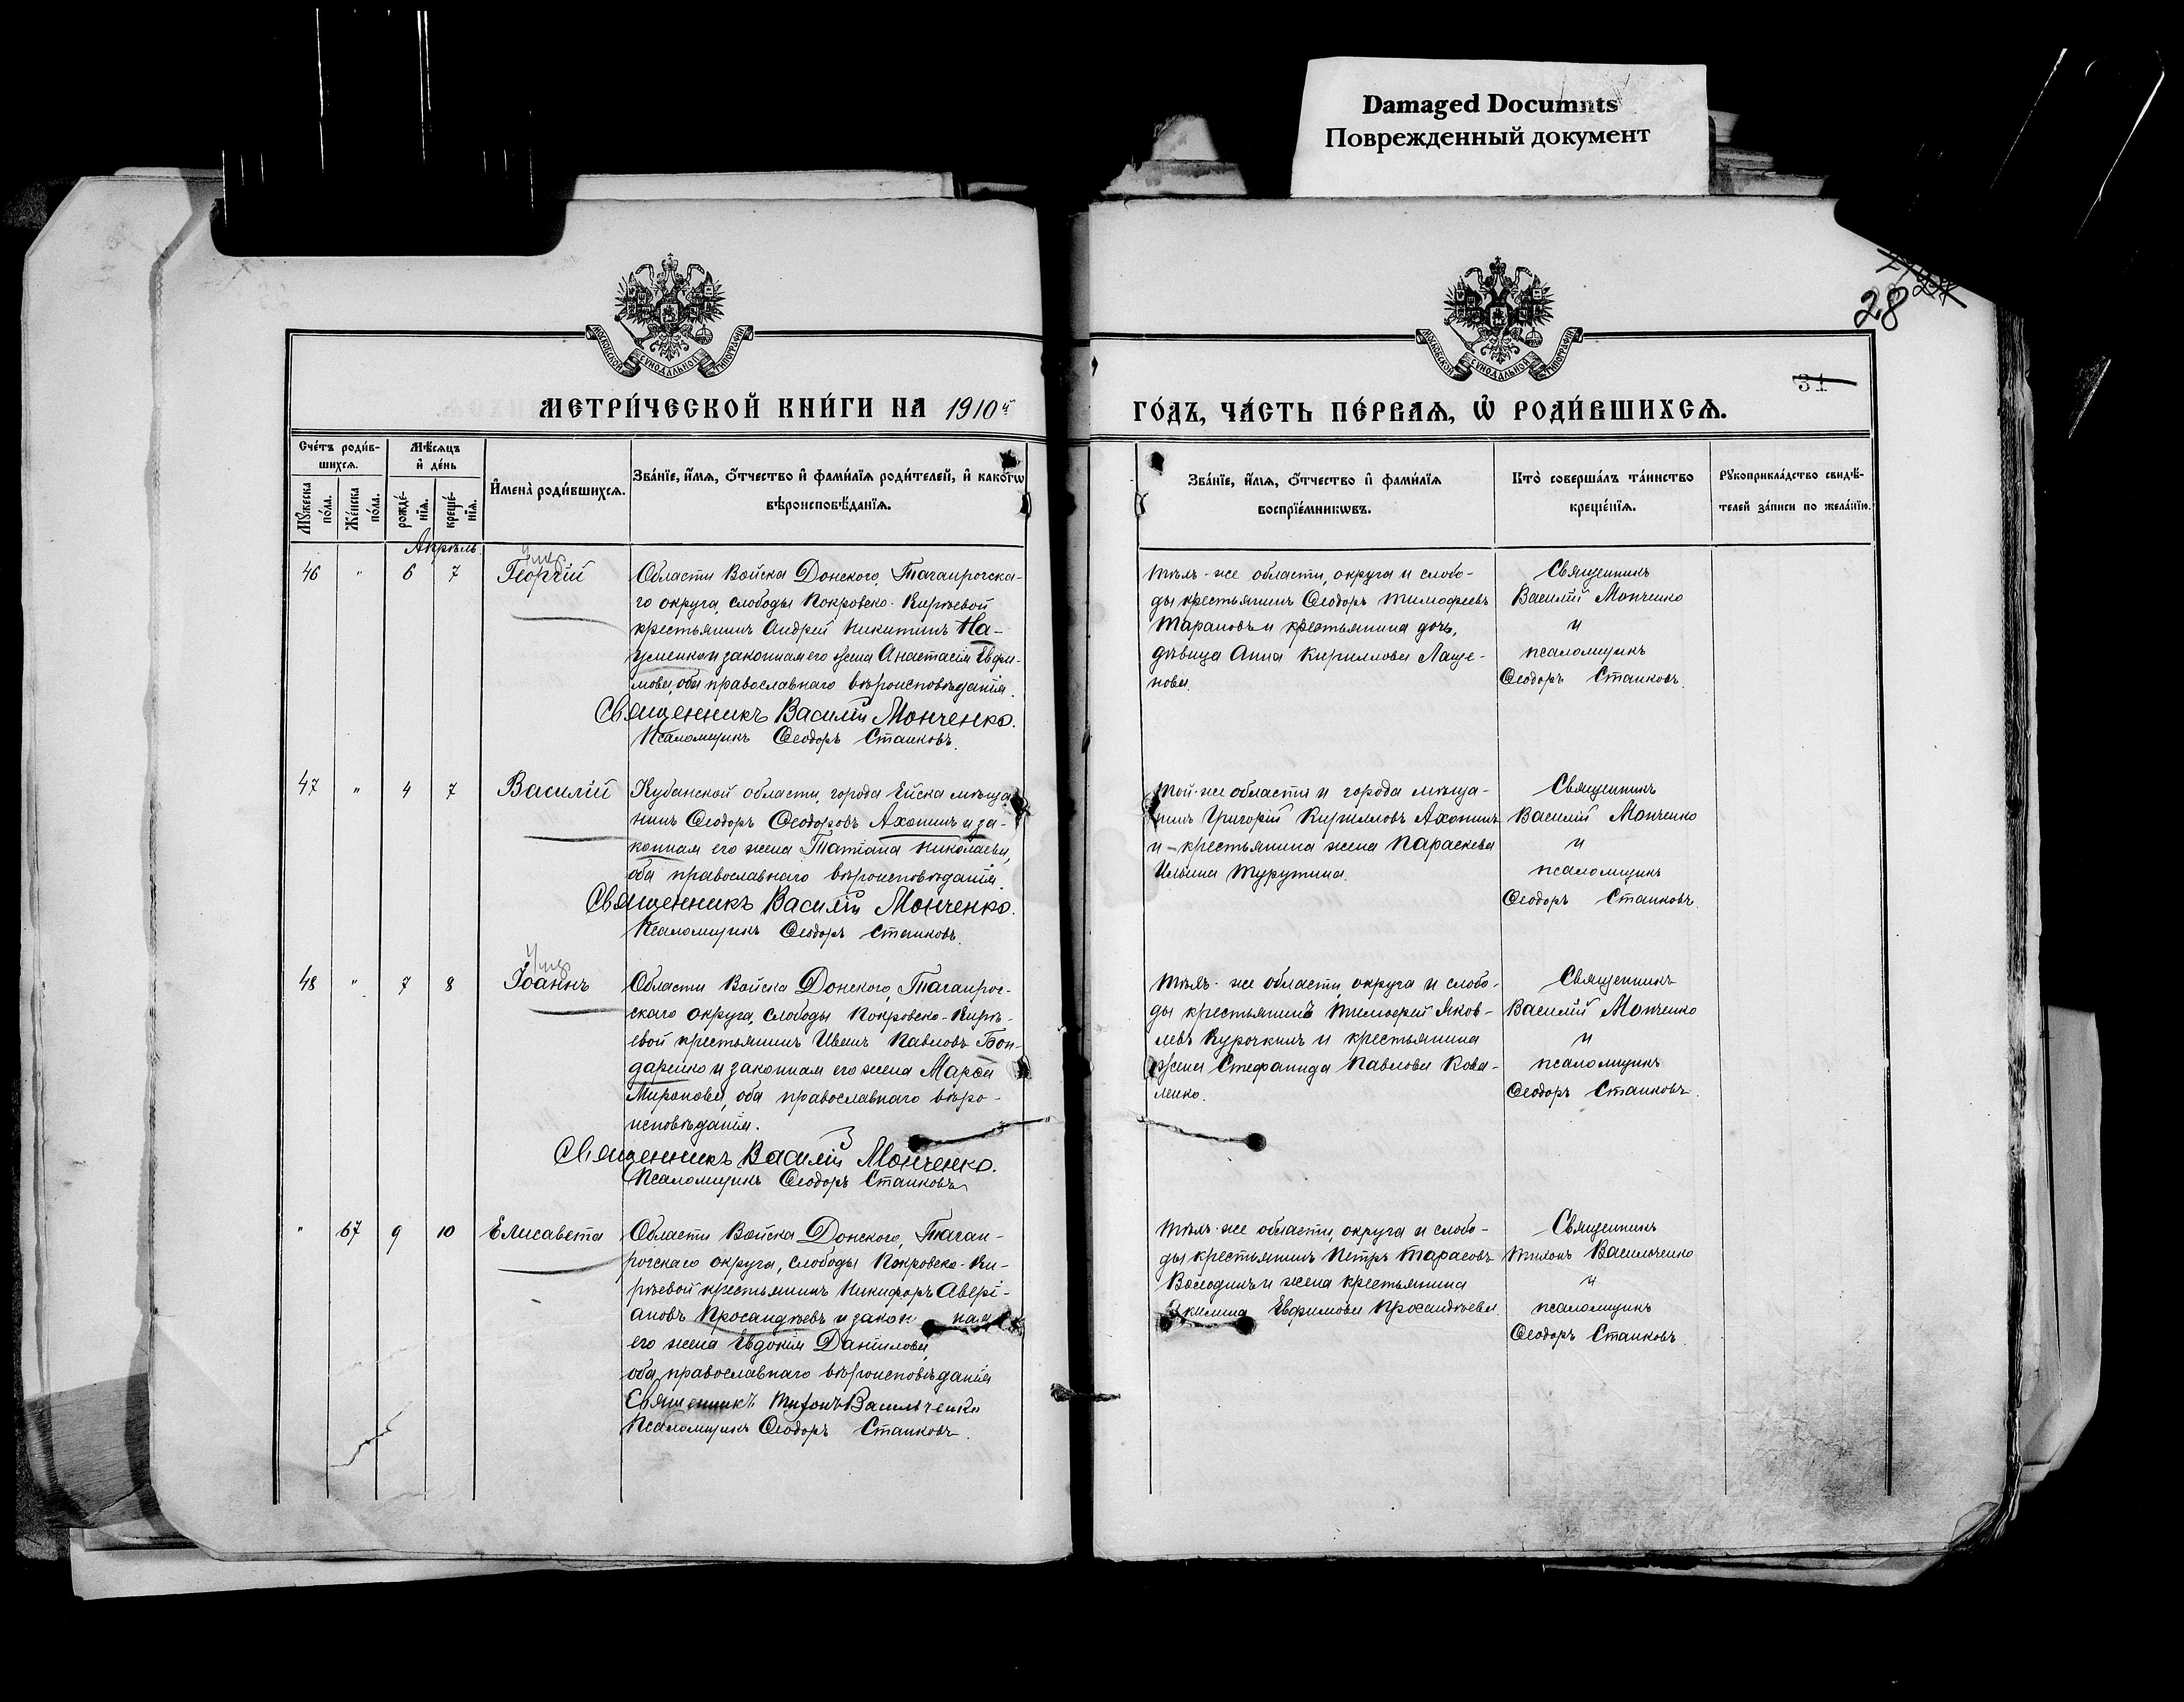 Damaged Documnts
Поврежденный документ
28
31
МОСКОВСКОЙ СУНОДАЛЬНОЙ ТИПОГРАФІИ
МОСКОВСКОЙ СУНОДАЛЬНОЙ ТИПОГРАФІИ
МЕТРИ́ЧЕСКОЙ КНИ́ГИ НА 1910й
ГО́ДЪ, ЧА́СТЬ ПЕ́РВАѦ, Ѡ҆ РОДИ́ВШИХСѦ.
Сче́тъ роди́в-
шихсѧ.
Мѣ́сѧцъ
и҆ де́нь
Мꙋ́жеска
по́ла.
Же́нска
по́ла.
рожде́-
нїѧ.
креще́-
нїѧ.
И҆мена̀ роди́вшихсѧ.
Зва́нїе, и҆́мѧ, ѻ҆́тчество и҆ фами́лїѧ роди́телей, и҆ како́гѡ
вѣроисповѣ́данїѧ.
Зва́нїе, и҆́мѧ, ѻ҆́тчество и҆ фами́лїѧ
воспрїе́мникѡвъ.
Кто̀ соверша́лъ та́инство
креще́нїѧ.
Рꙋкоприкла́дство свидѣ́-
телей за́писи по жела́нїю.
Апрѣль
46 " 6 7
умер
Георгій
Области Войска Донского, Таганрогска-
го округа, слободы Покровско-Кирѣевой
крестьянинъ Андрей Никитинъ На-
уменко и законная его жена Анастасія Евфи-
мова, оба православнаго вѣроисповѣданія.
Священникъ Василій Монченко.
Псаломщикъ Ѳеодоръ Станковъ.
Тѣхъ-же области, округа и слобо-
ды крестьянинъ Ѳеодоръ Тимофеевъ
Тарановъ и крестьянина дочь,
дѣвица Анна Кириллова Лаще-
нова.
Священникъ
Василій Монченко
и
псаломщикъ
Ѳеодоръ Станковъ.
47 " 4 7
Василій
Кубанской области, города Ейска мѣща-
нинъ Ѳеодоръ Ѳеодоровъ Ахонинъ и за-
конная его жена Татіана Николаева,
оба православнаго вѣроисповѣданія.
Священникъ Василій Монченко.
Псаломщикъ Ѳеодоръ Станковъ.
Той-же области и города мѣща-
нинъ Григорій Кирилловъ Ахонинъ
и крестьянина жена Параскева
Ильина Турутина.
Священникъ
Василій Монченко
и
псаломщикъ
Ѳеодоръ Станковъ.
48 " 7 8
умер
Іоаннъ
Области Войска Донского, Таганрог-
скаго округа, слободы Покровско-Кирѣ-
евой крестьянинъ Иванъ Павловъ Бон-
даренко и законная его жена Марѳа
Миронова, оба православнаго вѣро-
исповѣданія.
Священникъ Василій Монченко.
Псаломщикъ Ѳеодоръ Станковъ
Тѣхъ-же области, округа и слобо-
ды крестьянинъ Тимоѳей Яков-
левъ Курочкинъ и крестьянина
жена Стефанида Павлова Кова-
ленко.
Священникъ
Василій Монченко
и
псаломщикъ
Ѳеодоръ Станковъ.
" 67 9 10
Елисавета
Области Войска Донского, Таган-
рогскаго округа, слободы Покровско-Ки-
рѣевой крестьянинъ Никифоръ Авері-
ановъ Просандѣевъ и законная
его жена Евдокія Даніилова,
оба православнаго вѣроисповѣданія
Священникъ Тихонъ Васильченко
Псаломщикъ Ѳеодоръ Станковъ.
Тѣхъ-же области, округа и слобо-
ды крестьянинъ Петръ Тарасовъ
Володинъ и жена крестьянина
Акилина Евфимова Просандѣева.
Священникъ
Тихонъ Васильченко
и
псаломщикъ
Ѳеодоръ Станковъ.